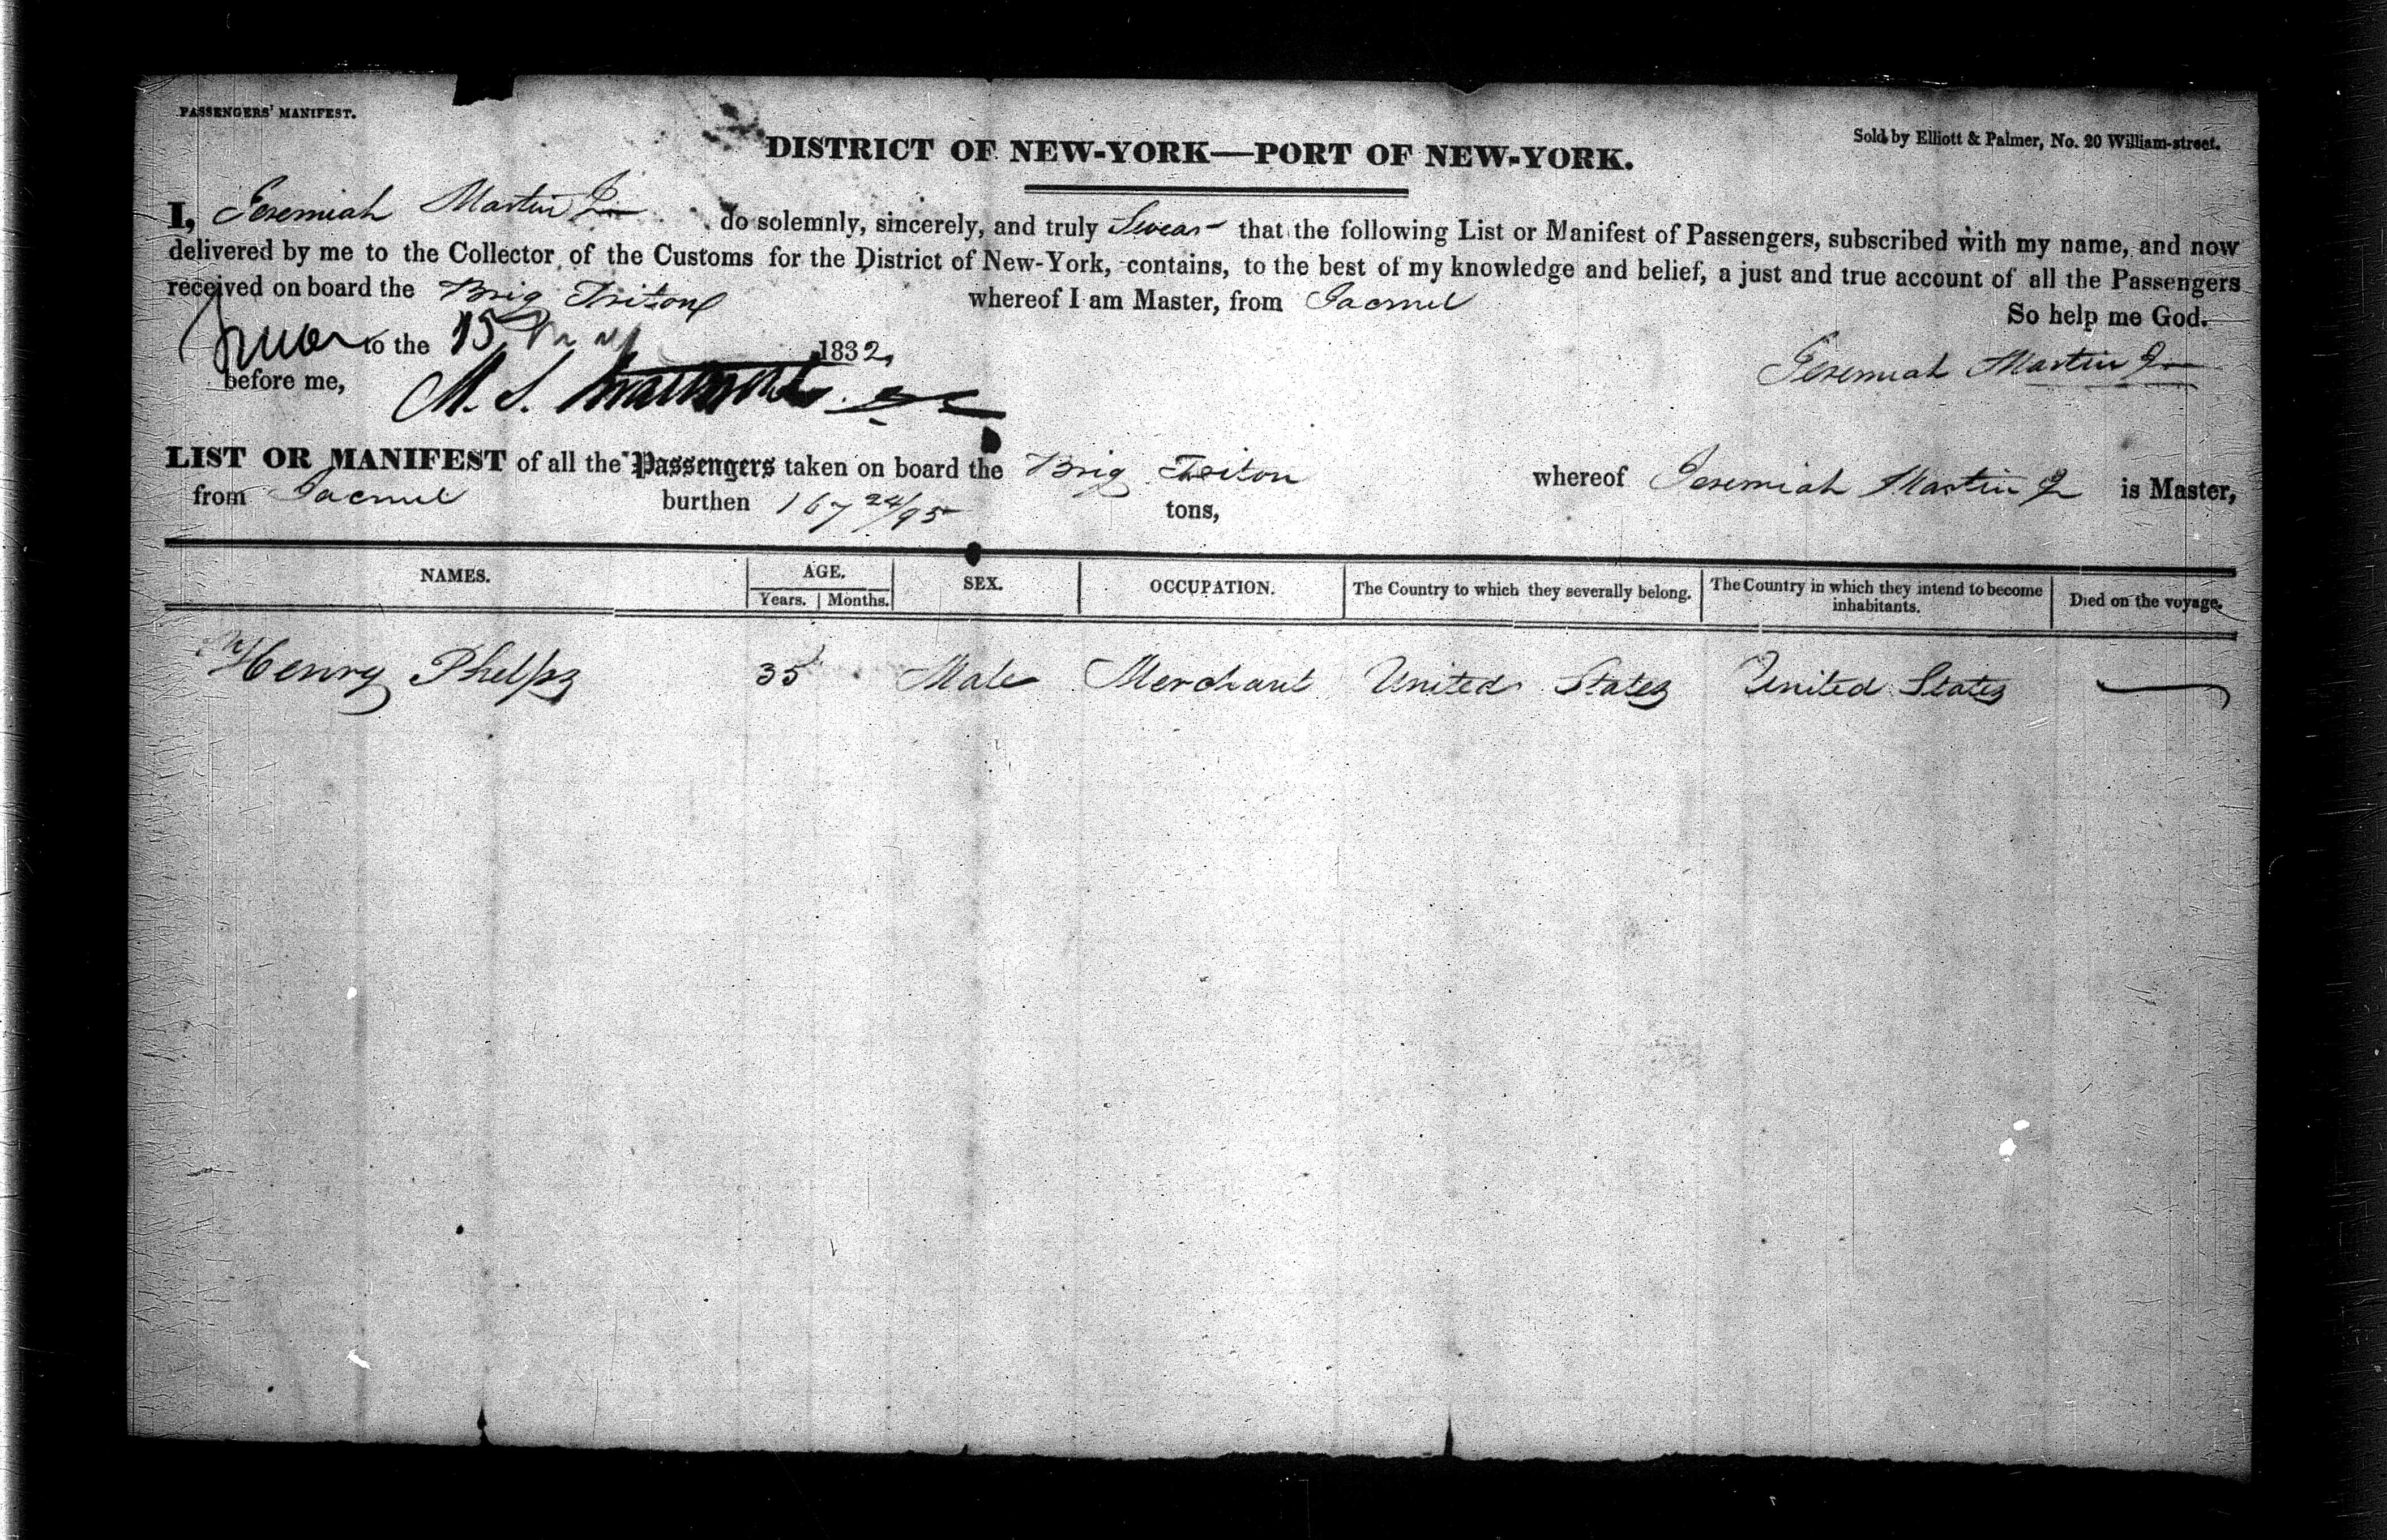 PASSENGERS' MANIFEST.
Sold by Elliott & Palmer, No. 20 William-street.
DISTRICT OF NEW-YORK—PORT OF NEW-YORK.
I, Jeremiah Martin Jr do solemnly, sincerely, and truly Swear that the following List or Manifest of Passengers, subscribed with my name, and now
delivered by me to the Collector of the Customs for the District of New-York, contains, to the best of my knowledge and belief, a just and true account of all the Passengers
received on board the Brig Triton whereof I am Master, from Jacmel
So help me God.
Swor to the 15 May 1832
Jeremiah Martin Jr
before me, M. S.
LIST OR MANIFEST of all the Passengers taken on board the Brig Triton whereof Jeremiah Martin Jr is Master,
from Jacmel burthen 167 24/95 tons,
NAMES. AGE. SEX. OCCUPATION. The Country to which they severally belong. The Country in which they intend to become inhabitants. Died on the voyage.
Years. Months.
Mr Henry Phelps 35 Male Merchant United States United States —